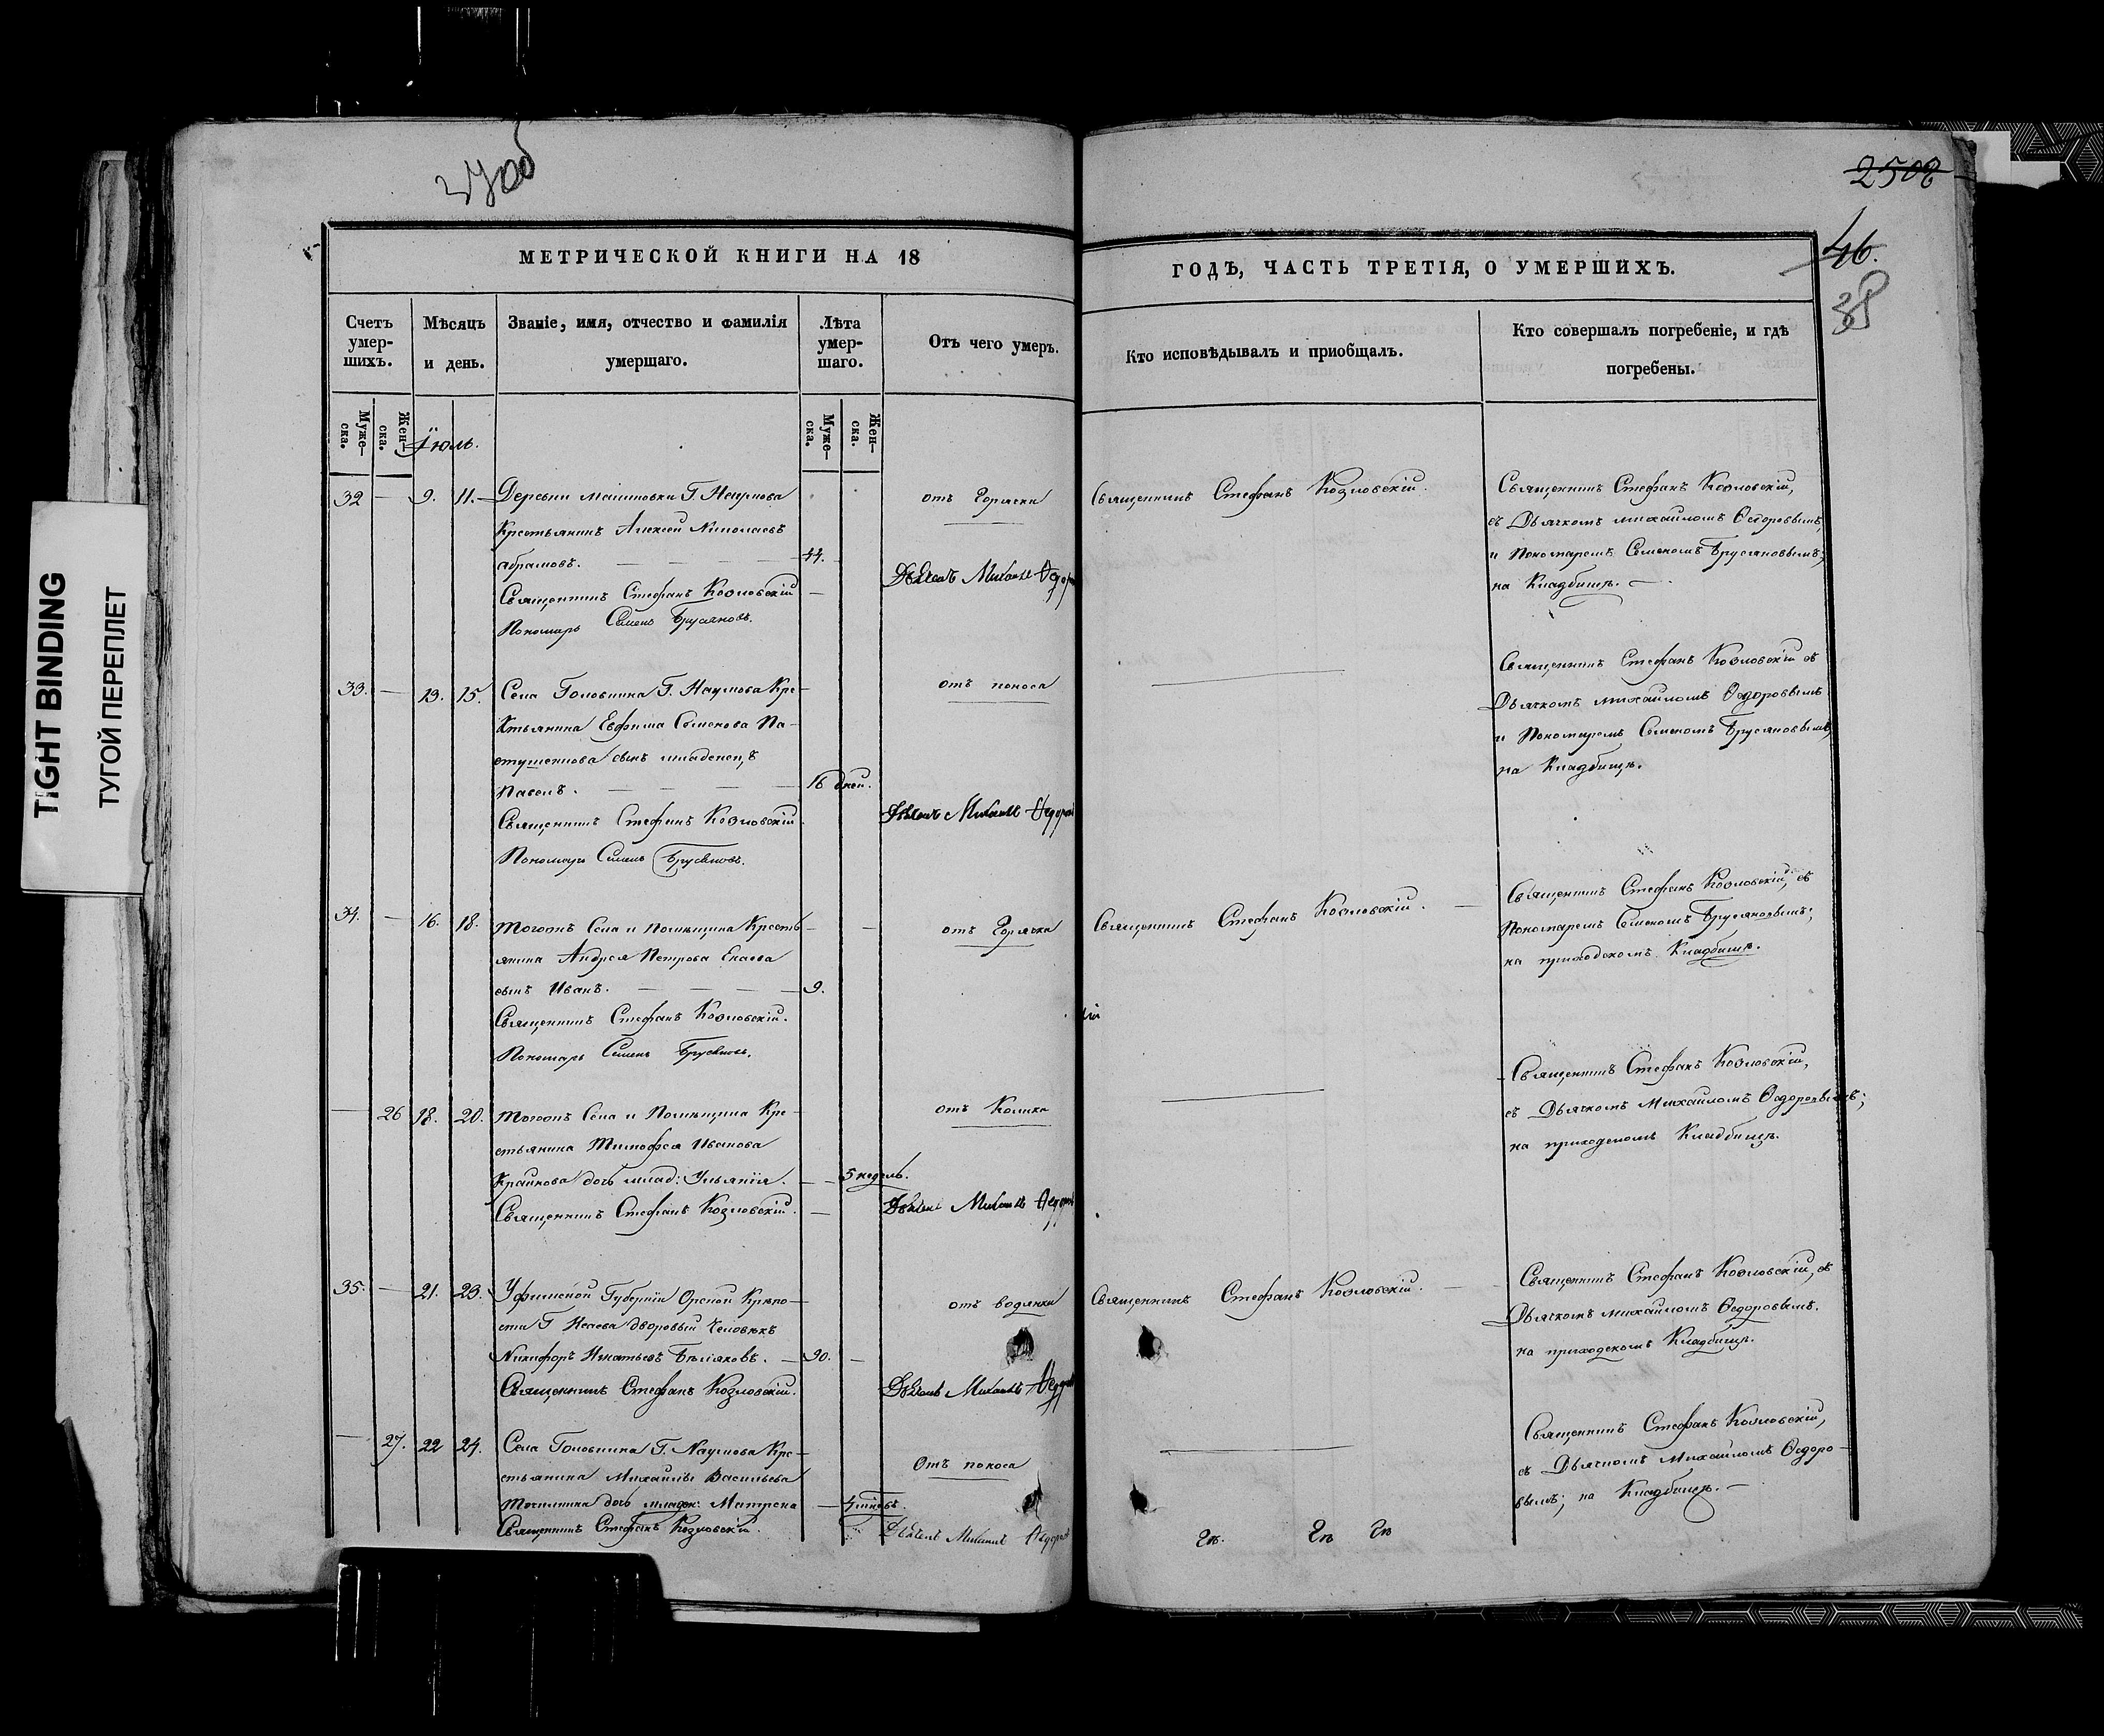 TIGHT BINDING
ТУГОЙ ПЕРЕПЛЕТ
37об
2508
46.
38
МЕТРИЧЕСКОЙ КНИГИ НА 18
ГОДЪ, ЧАСТЬ ТРЕТІЯ, О УМЕРШИХЪ.
Счетъ умер-шихъ.
Мѣсяцъ и день.
Званіе, имя, отчество и фамилія умершаго.
Лѣта умер-шаго.
Отъ чего умеръ.
Кто исповѣдывалъ и пріобщалъ.
Кто совершалъ погребеніе, и гдѣ погребены.
Муже-ска.
Жен-ска.
Муже-ска.
Жен-ска.
Іюль.
32 — 9. 11. Деревни Г. Наумова
Крестьянинъ Алексей Николаевъ
абрамовъ. — 44.
Священникъ Стефанъ Козловскій
Пономарь Семенъ Брусяновъ.
отъ Горячки
Дьячекъ Михаилъ Федоровъ
Священникъ Стефанъ Козловскій.
Священникъ Стефанъ Козловскій,
съ Дьячкомъ Михаиломъ Ѳедоровымъ,
и Пономаремъ Семеномъ Брусяновымъ;
на Кладбищѣ. —
33. — 13. 15. Села Головина Г. Наумова Кре-
стьянина Евфима Семенова Па-
стушенкова сынъ младенецъ
Павелъ. — 16 дней.
Священникъ Стефанъ Козловскій
Пономарь Семенъ Брусяновъ.
отъ поноса
Дьячекъ Михаилъ Федоровъ
Священникъ Стефанъ Козловскій съ
Дьячкомъ Михаиломъ Ѳедоровымъ
и Пономаремъ Семеномъ Брусяновымъ,
на Кладбищѣ.
34. — 16. 18. Тогожъ Села и Помѣщика Кресть-
янина Андрея Петрова
сынъ Иванъ. — 9.
Священникъ Стефанъ Козловскій.
Пономарь Семенъ Брусяновъ.
отъ Горячки
Священникъ Стефанъ Козловскій. —
Священникъ Стефанъ Козловскій, съ
Пономаремъ Семеномъ Брусяновымъ;
на приходскомъ Кладбищѣ.
— 26 18. 20. Тогожъ Села и Помѣщика Кре-
стьянина Тимофея Иванова
Крайнова дочь млад: Ульянія. — 5 недель.
Священникъ Стефанъ Козловскій.
отъ Колики
Дьячекъ Михаилъ Федоровъ
Священникъ Стефанъ Козловскій,
съ Дьячкомъ Михаиломъ Ѳедоровымъ;
на приходскомъ Кладбищѣ.
35. — 21. 23. Уфимской Губерніи Орской Крѣпо-
сти Г дворовый Человѣкъ
Никифоръ Игнатьевъ Бѣляковъ. — 30.
Священникъ Стефанъ Козловскій.
отъ водянки
Дьячекъ Михаилъ Федоровъ
Священникъ Стефанъ Козловскій.
Священникъ Стефанъ Козловскій, съ
Дьячкомъ Михаиломъ Ѳедоровымъ.
на приходскомъ Кладбищѣ.
— 27. 22 24. Села Головина Г. Наумова Кре-
стьянина Михайлы Васильева
дочь младен: Матрена —
Священникъ Стефанъ Козловскій.
Отъ поноса
Дьячекъ Михаилъ Федоровъ
Священникъ Стефанъ Козловскій,
съ Дьячкомъ Михаиломъ Ѳедоро-
вымъ; на Кладбищѣ. —